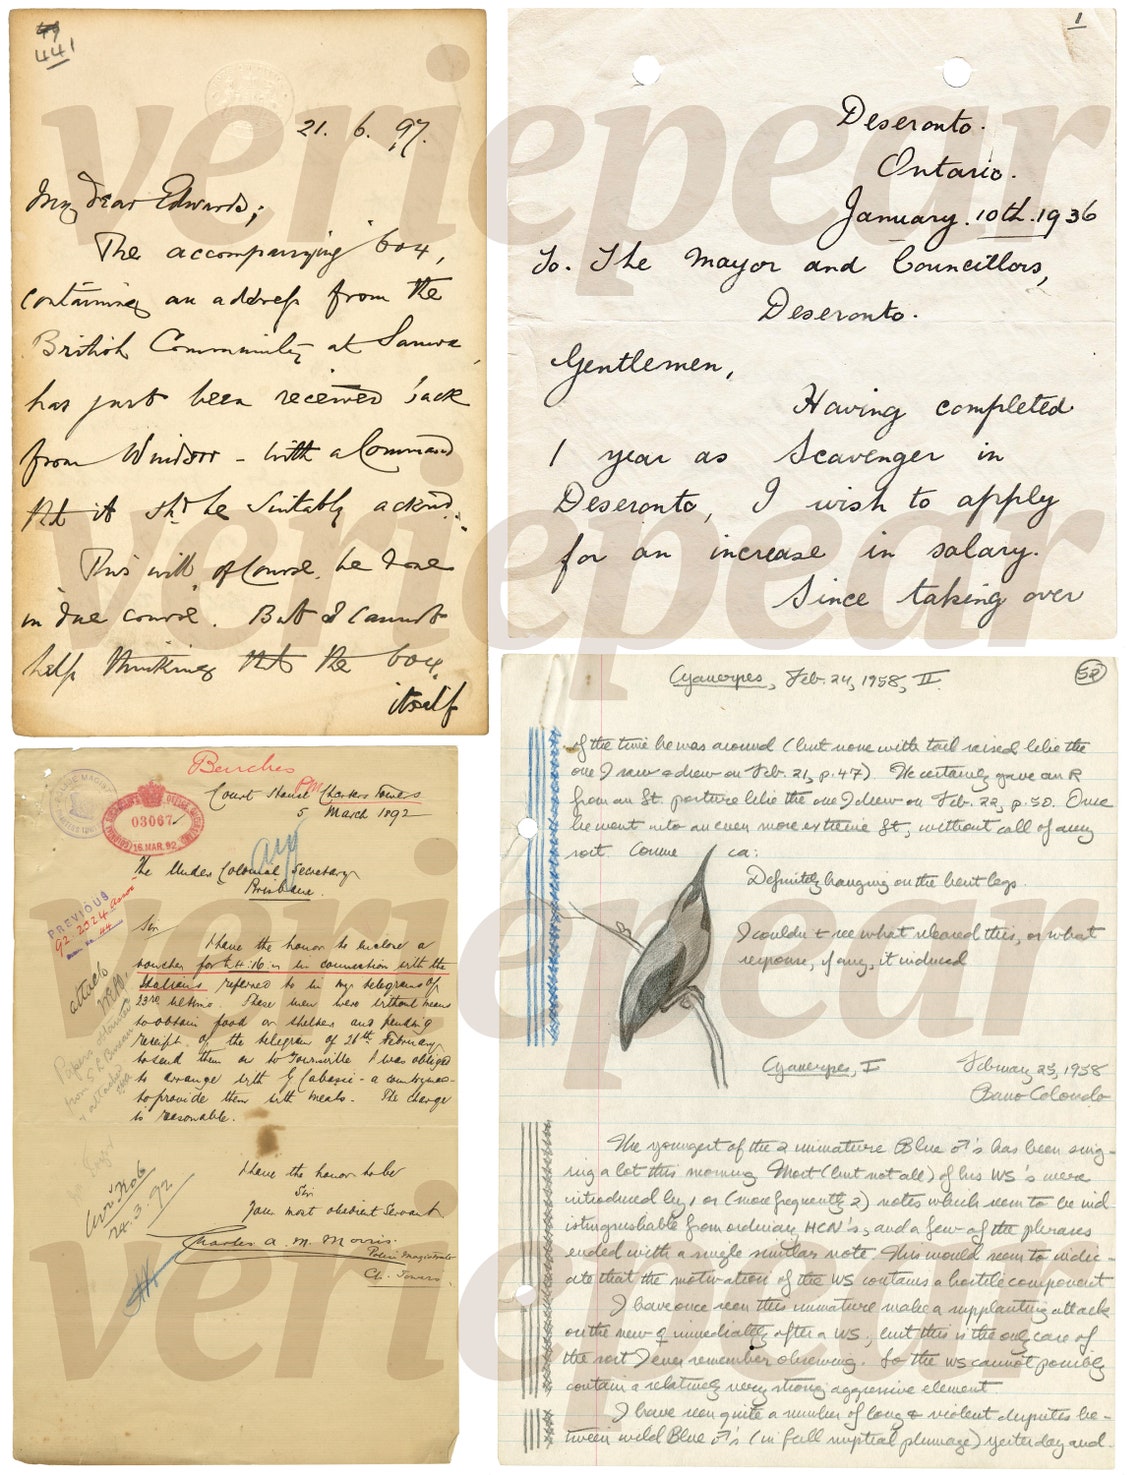 441
21. 6. 97.
My Dear Edwards;
The accompanying box,
containing an address from the
British Community at Samoa,
has just been received back
from Windsor - with a Command
tht it shd. be suitably acknd.
This will, of Course, be done
in due course. But I cannot
help thinking tht the box
itself
1
Deseronto.
Ontario.
January. 10th. 1936
To. The Mayor and Councillors,
Deseronto.
Gentlemen,
Having completed
1 year as Scavenger in
Deseronto, I wish to apply
for an increase in salary.
Since taking over
Benches
Court House Charters Towers
5 March 1892
03067
16.MAR.92
The Under Colonial Secretary
Brisbane.
PREVIOUS
92. 2024
Sir
I have the honor to enclose a
voucher for £4.16. in connection with the
Italians referred to in my telegram of
23rd ultimo. These men were without means
to obtain food or shelter and pending
receipt of the telegram of 26th February
to send them on to Townsville I was obliged
to arrange with G Cabassi - a countryman -
to provide them with meals. The charge
is reasonable.
I have the honor to be
Sir
Your most obedient Servant
Charles A. M. Morris.
Police Magistrate
Ch. Towers.
24.3.92
Cyanerpes, Feb. 24, 1958, II
52
of the time he was around (but none with tail raised like the
one I saw & drew on Feb. 21, p. 47) He certainly gave an R
from an St. posture like the one I drew on Feb. 22, p. 50. Once
he went into an even more extreme St, without call of any
sort. Comme ca:
Definitely hanging on the bent legs.
I couldn't see what released this, or what
response, if any, it induced
Cyanerpes, I
February 25, 1958
Barro Colorado
The youngest of the 2 immature Blue ♂'s has been sing-
ing a lot this morning Most (but not all) of his WS's were
introduced by 1 or (more frequently 2) notes which seem to be ind
istinguishable from ordinary HCN's, and a few of the phrases
ended with a single similar note This would seem to indic-
ate that the motivation of the WS contains a hostile component
I have once seen this immature make a supplanting attack
on the new ♀ immediately after a WS, but this is the only case of
the sort I ever remember observing. So the WS cannot possibly
contain a relatively very strong aggressive element
I have seen quite a number of long & violent disputes be-
tween wild Blue ♂'s (in full nuptial plumage) yesterday and
veriepear
veriepear
veriepear
veriepear